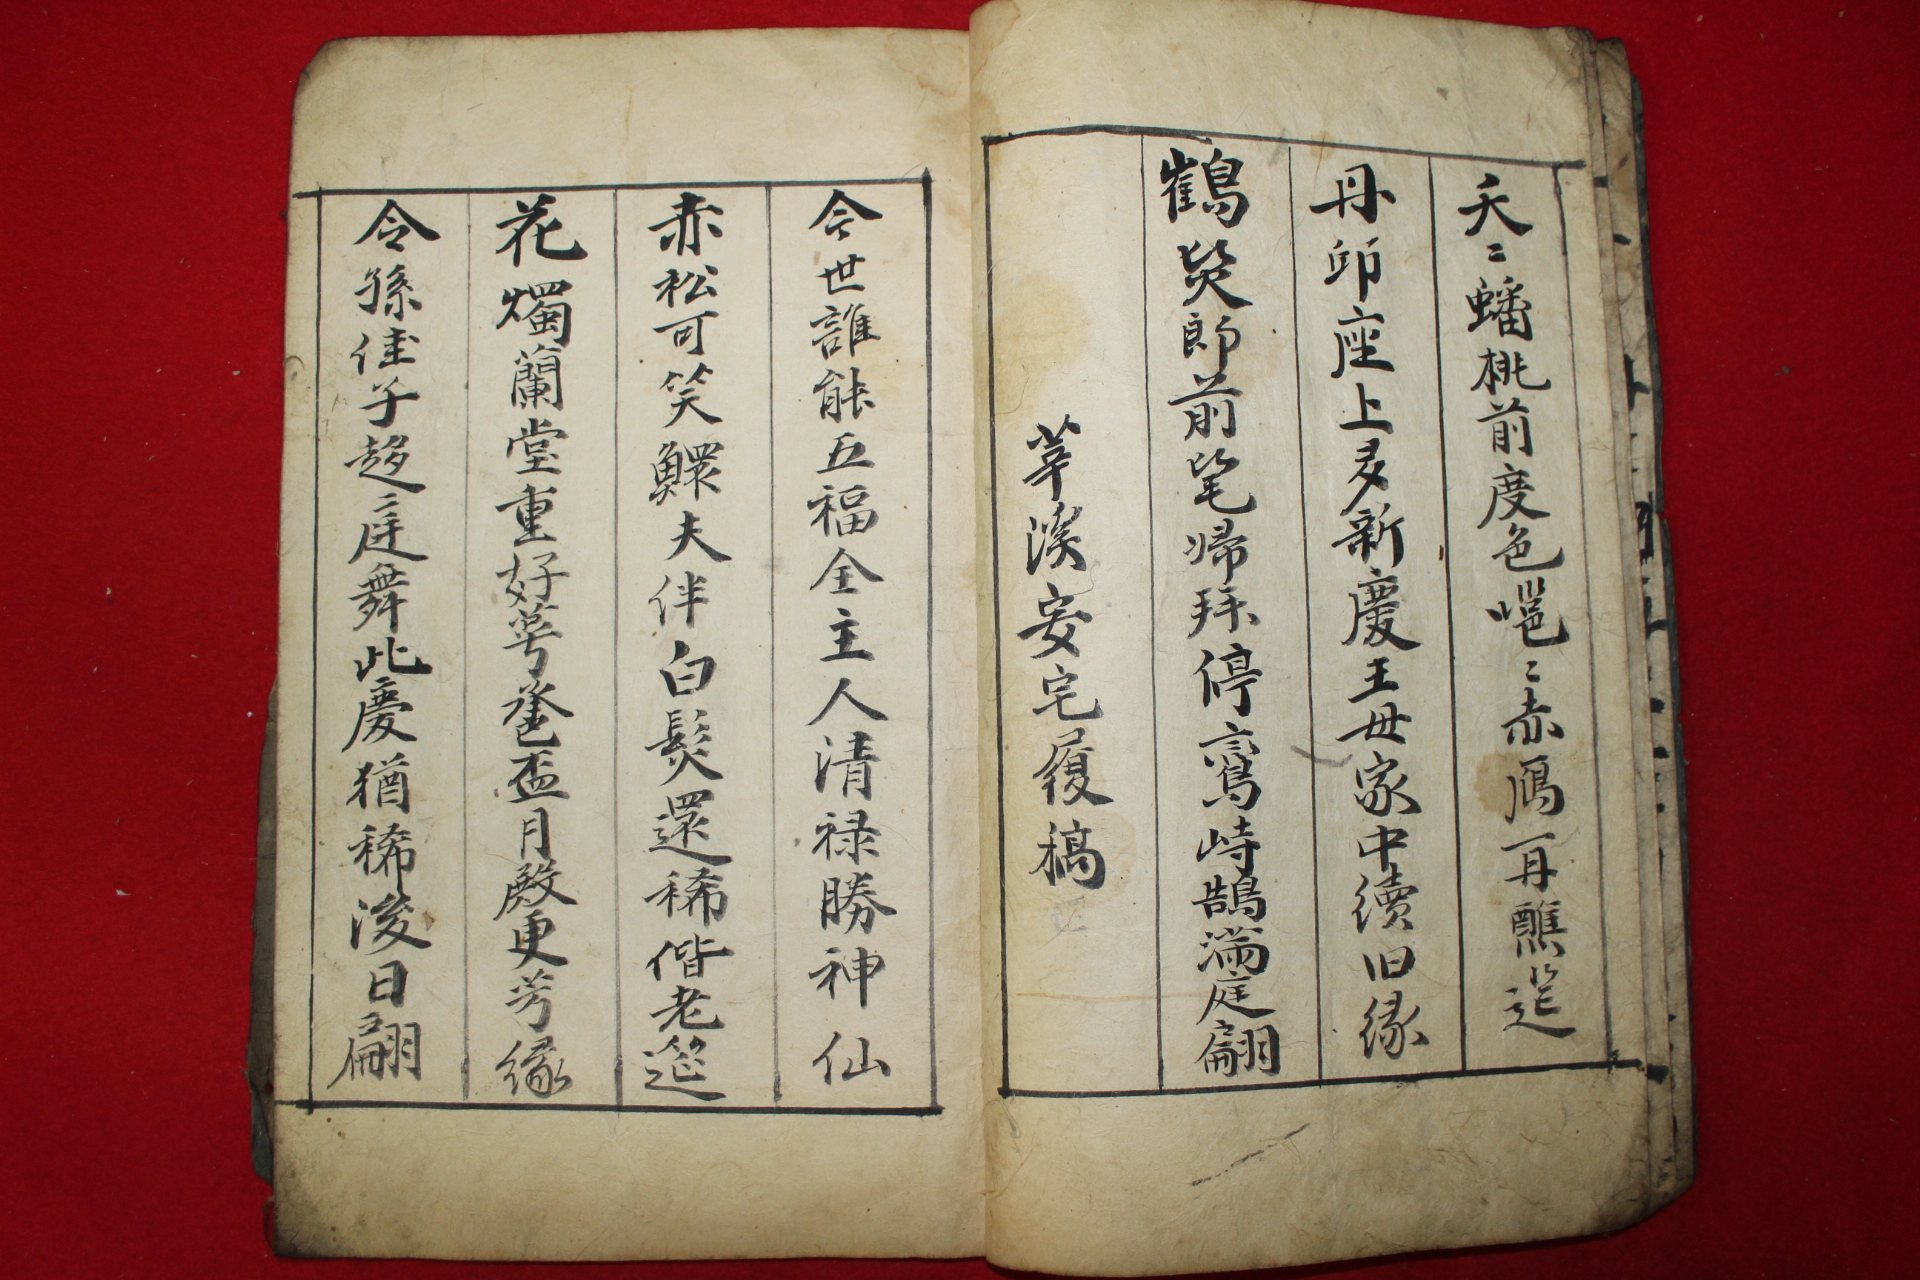 夭〻蟠桃前度色嗈〻赤鴈再醮筵
丹卯座上多新慶王母家中續旧緣
鶴髮郎前笔帰拜停鸞峙鵠滿庭翩
莘溪安宅履稿
今世誰能五福全主人清禄勝神仙
赤松可笑鰥夫伴白髮還稀偕老筵
花燭蘭堂重好萼巹盃月殿更芳緣
令孫佳子趍庭舞此慶猶稀浚日翩